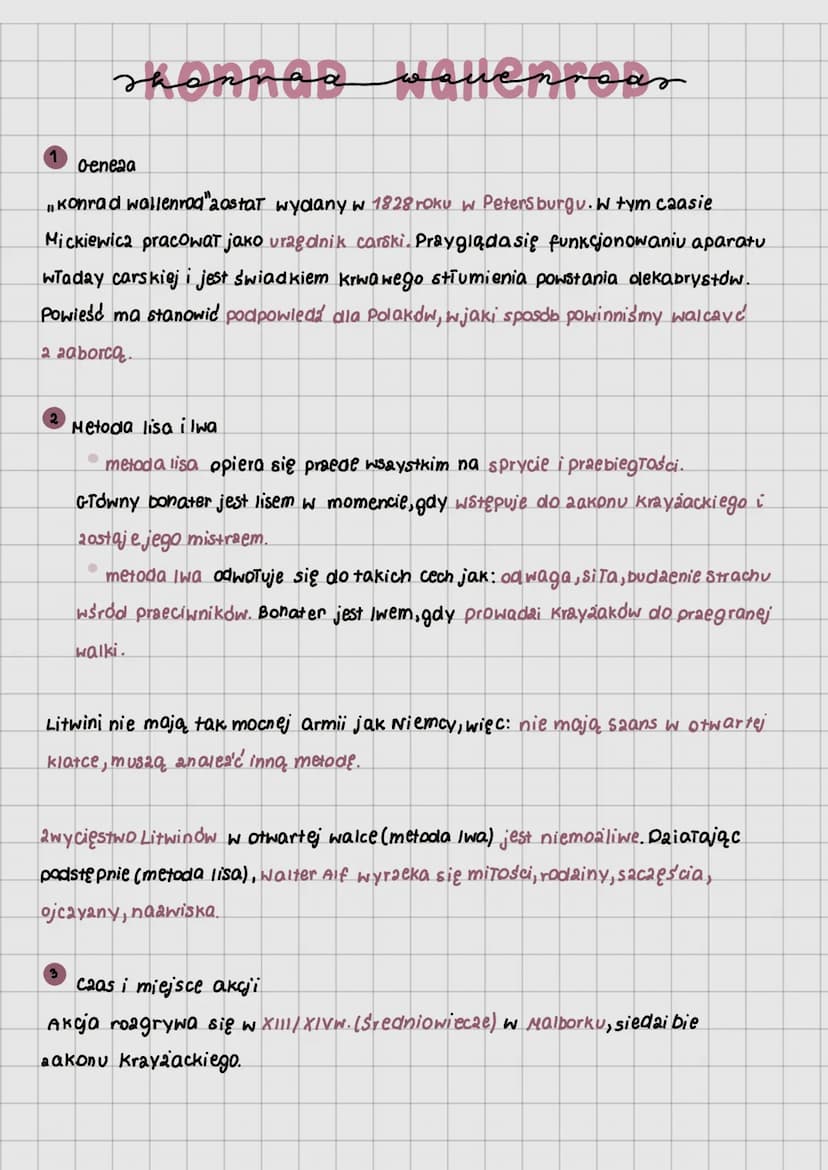 Konrad Wallenrod
1 Geneza
„Konrad Wallenrod" został wydany w 1828 roku w Petersburgu. W tym czasie
Mickiewicz pracował jako urzędnik carski. Przygląda się funkcjonowaniu aparatu
władzy carskiej i jest świadkiem krwawego stłumienia powstania dekabrystów.
Powieść ma stanowić podpowiedź dla Polaków, w jaki sposób powinniśmy walczyć
z zaborcą.
2 Metoda lisa i lwa
• metoda lisa opiera się przede wszystkim na sprycie i przebiegłości.
Główny bohater jest lisem w momencie, gdy wstępuje do zakonu krzyżackiego i
zostaje jego mistrzem.
• metoda lwa odwołuje się do takich cech jak: odwaga, siła, budzenie strachu
wśród przeciwników. Bohater jest lwem, gdy prowadzi krzyżaków do przegranej
walki.
Litwini nie mają tak mocnej armii jak Niemcy, więc: nie mają szans w otwartej
klatce, muszą znaleźć inną metodę.
Zwycięstwo Litwinów w otwartej walce (metoda lwa) jest niemożliwe. Działając
podstępnie (metoda lisa), Walter Alf wyrzeka się miłości, rodziny, szczęścia,
ojczyzny, nazwiska.
3 Czas i miejsce akcji
Akcja rozgrywa się w XIII/XIVw. (Średniowiecze) w Malborku, siedzibie
zakonu krzyżackiego.